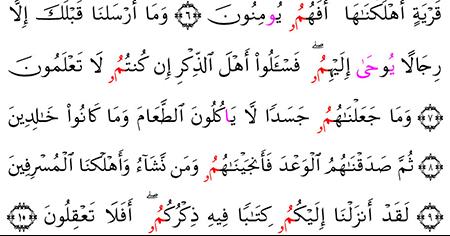 قَرْيَةٍ أَهْلَكْنَٰهَا أَفَهُمُۥ يُومِنُونَ ٦ وَمَا أَرْسَلْنَا قَبْلَكَ إِلَّا
رِجَالًا يُوحَىٰ إِلَيْهِمُۥۖ فَسْـَٔلُوا۟ أَهْلَ ٱلذِّكْرِ إِن كُنتُمُۥ لَا تَعْلَمُونَ
٧ وَمَا جَعَلْنَٰهُمُۥ جَسَدًا لَّا يَاكُلُونَ ٱلطَّعَامَ وَمَا كَانُوا۟ خَٰلِدِينَ
٨ ثُمَّ صَدَقْنَٰهُمُ ٱلْوَعْدَ فَأَنجَيْنَٰهُمُۥ وَمَن نَّشَآءُ وَأَهْلَكْنَا ٱلْمُسْرِفِينَ
٩ لَقَدْ أَنزَلْنَا إِلَيْكُمُۥ كِتَٰبًا فِيهِ ذِكْرُكُمُۥۖ أَفَلَا تَعْقِلُونَ ١٠